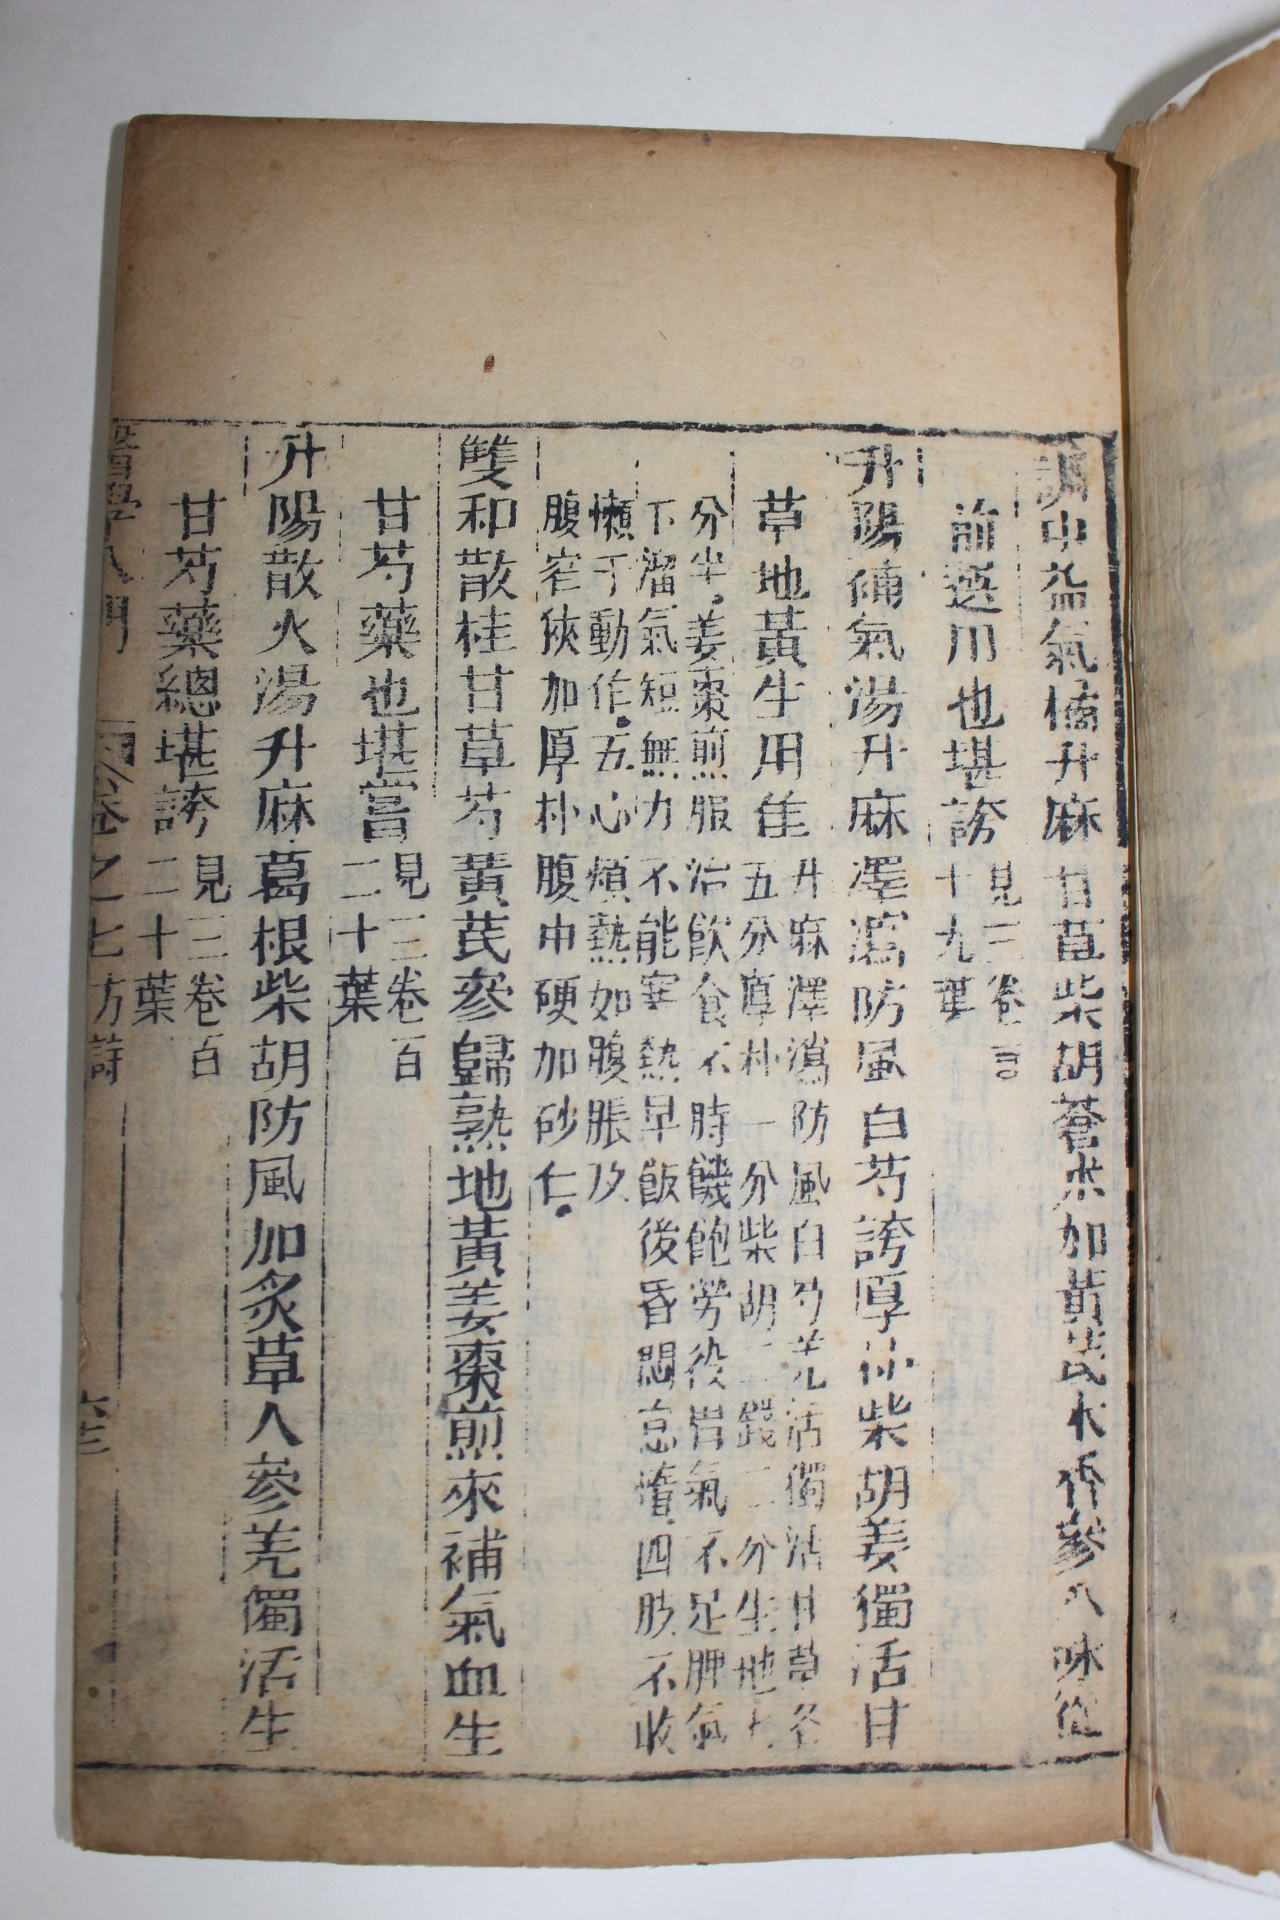 調中益氣橘升麻甘草柴胡蒼朮加黃芪木香參八味從
前選用也堪誇見三卷百
十九葉
升陽補氣湯升麻澤瀉防風白芍誇厚朴柴胡姜獨活甘
草地黃生用佳升麻澤瀉防風白芍羌活獨活甘草各
五分厚朴一分柴胡二錢二分生地七
分半姜棗煎服治飲食不時饑飽勞役胃氣不足脾氣
下溜氣短無力不能寒熱早飯後昏悶怠惰四肢不收
懶于動作五心煩熱如腹脹及
腹窄狹加厚朴腹中硬加砂仁
雙和散桂甘草芍黃芪參歸熟地黃姜棗煎來補氣血生
甘芍藥也堪嘗見三卷百
二十葉
升陽散火湯升麻葛根柴胡防風加炙草人參羌獨活生
甘芍藥總堪誇見三卷百
二十葉
醫學入門 卷之七方詩 六三